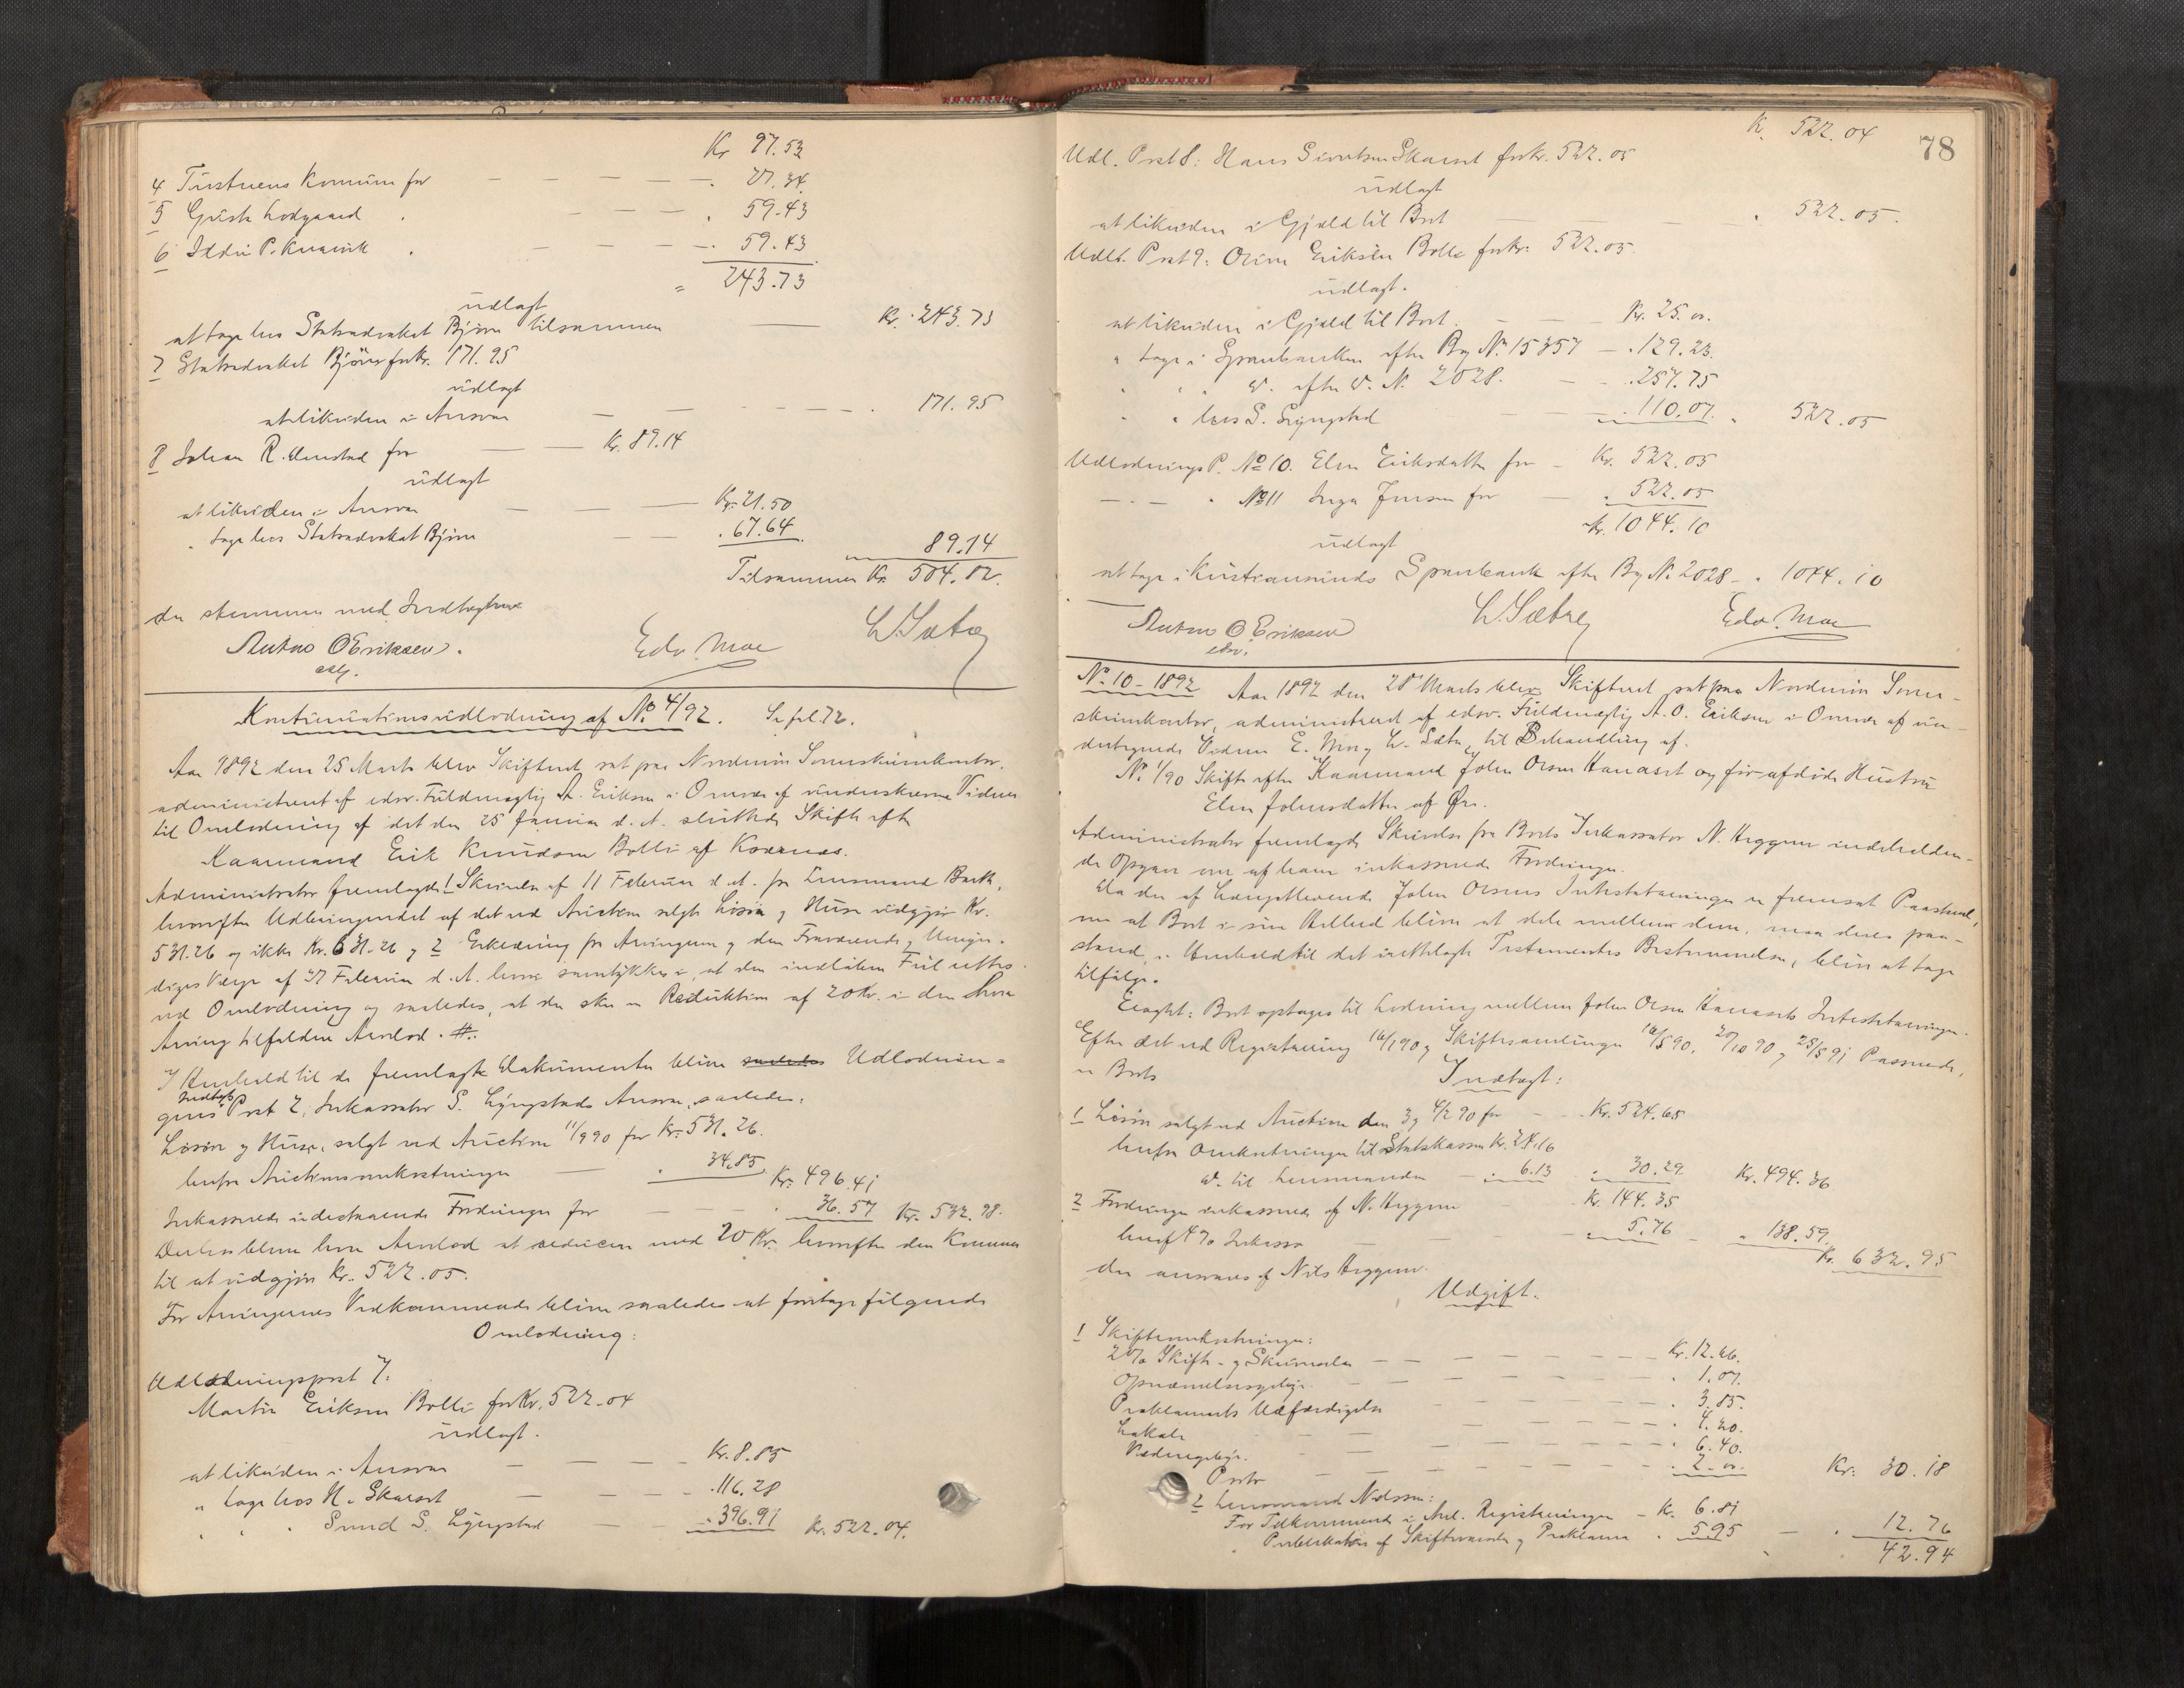 Kr 97.53
4 Tustnens Komune for — — — — — . 27.34.
5 Gurih Lodgaard . — — — . 59.43
6 Ildri P. Knarvik . — — — . 59.43
" 243.73
udlagt
at tage hos Statsadvokat Bjørn tilsammen — Kr. 243.73
7 Statsadvokat Bjørn for Kr. 171.95
udlagt
at likvidere i Ansvar — — — — — . 171.95
8 Johan R. Ulmstad for — Kr. 89.14
udlagt
at likvidere i Ansvar — — — Kr. 21.50
" tage hos Statsadvokat Bjørn — — . 67.64 " 89.14
Tilsammen Kr. 504.82.
der stemmer med Indtægterne
Anton O Eriksen. Edv. Moe L. Sæter
edsv.
Kontinuationsudlodning af No 4/92. Se fol. 72.
Aar 1892 den 25 Marts blev Skifteret sat paa Nordmør Sorenskriverkontor,
administreret af edsv. Fuldmægtig A. Eriksen i Overvær af underskrevne Vidner
til Omlodning af det den 25 Januar d. A. sluttede Skifte efter
Kaarmand Erik Knudsen Bolli af Kvernes.
Administrator fremlagde 1 Skrivelse af 11 Februar d. A. fra Lensmand Barth,
hvorefter Udbringendet af det ved Auktion solgte Løsøre og Huse udgjør Kr.
531.26 og ikke Kr. 631.26 og 2 Erklæring fra Arvingerne og den Fraværendes og Umyn-
diges Værge af 27 Februar d. A. hvori samtykkes i, at den indløbne Feil rettes
ved Omlodning og saaledes, at der sker en Reduktion af 20 Kr. i den hver
Arving tilfaldne Arvelod. #.
I Henhold til de fremlagte Dokumenter bliver saaledes Udlodnin-
gens Indtægts Post 2, Inkassator S. Lyngstads Ansvar, saaledes:
Løsøre og Huse, solgt ved Auktion 11/9 90 for Kr. 531.26.
herfra Auktionsomkostninger — . 34.85. Kr. 496.41
Inkasserede udestaaende Fordringer for — — . 36.57 Kr. 532.98.
Derhos bliver hver Arvelod at reducere med 20 Kr. hvorefter den kommer
til at udgjøre Kr. 522.05.
For Arvingernes Vedkommende bliver saaledes at foretage følgende
Omlodning:
Udlodningspost 7.
Martin Eriksen Bolli for Kr. 522.04
udlagt.
at likvidere i Ansvar — — — Kr. 8.85
" tage hos H. Skarset — — — . 116.28
" " " Svend S. Lyngstad — — . 396.91 Kr. 522.04.
78
Kr. 522.04
Udl. Post 8: Hans Sivertsen Skarset for Kr. 522.05
udlagt
at likvidere i Gjæld til Boet — — . 522.05.
Udl. Post 9: Oline Eriksdn Bolli for Kr. 522.05.
udlagt.
at likvidere i Gjæld til Boet. — — Kr. 25. oo.
" tage i Sparebanken efter Bog No 15357 — . 129.23.
" " " d. efter d. No. 2028. — — . 257.75
" " hos S. Lyngstad — — . 110.07. . 522.05
Udlodnings P. No 10. Elen Eriksdatter for — Kr. 522.05
— . — " No 11 Inga Jensen for — . 522.05
Kr. 1044.10
udlagt
at tage i Kristiansunds Sparebank efter Bog No. 2028 — . 1044.10
Anton O Eriksen L. Sæter Edv. Moe
edsv.
No. 10 - 1892 Aar 1892 den 28 Marts blev Skifteret sat paa Nordmør Soren-
skriverkontor, administreret af edsv. Fuldmægtig A. O. Eriksen i Overvær af un-
dertegnede Vidner E. Moe og L. Sæter, til Behandling af
No. 1/90 Skifte efter Kaarmand John Olsen Hanaset og før afdøde Hustru
Elen Johnsdatter af Øre.
Administrator fremlagde Skrivelse fra Boets Inkassator N. Heggem indeholden-
de Opgave over af ham inkasserede Fordringer.
Da der af Længstlevende John Olsens Intestatarvinger er fremsat Paastand,
om at Boet i sin Helhed bliver at dele mellem dem, maa deres paa-
stand, i Henhold til det indlagte Testamentes Bestemmelser, blive at tage
tilfølge.
Eragtet: Boet optages til Lodning mellem John Olsen Hanasets Intestatarvinger.
Efter det ved Registrering 16/1 90 og Skiftesamlinger 16/5 90, 20/10 90 og 25/5 91 Passerede,
er Boets
Indtægt:
1 Løsøre solgt ved Auktion den 3 og 4/2 90 for — Kr. 524.65
herfra Omkostninger til Statskassen Kr. 24.16
d. til Lensmanden — . 6.13 . 30.29. Kr. 494.36
2 Fordringer inkasserede af N. Heggem — Kr. 144.35
herfra 4 % Inkasso — — . 5.76 — . 138.59.
der ansvares af Nils Heggem. Kr. 632.95
Udgift.
1 Skifteomkostninger:
2 % Skifte- og Skriversalær — — — — Kr. 12.66.
Opnævnelsesgebyr. — — — — — . 1.07.
Proklamaets Udfærdigelse — — — — . 3.85.
Lokale — — — — — . 4.20.
Vidnegebyr. — — — — — . 6.40.
Porto — — — — — . 2. oo. Kr. 30.18
2 Lensmand Nilssen:
For Tilkommende i Anl. Registreringen — Kr. 6.81
" Publikation af Skiftevarsel og Proklama . 5.95 — . 12.76
42.94